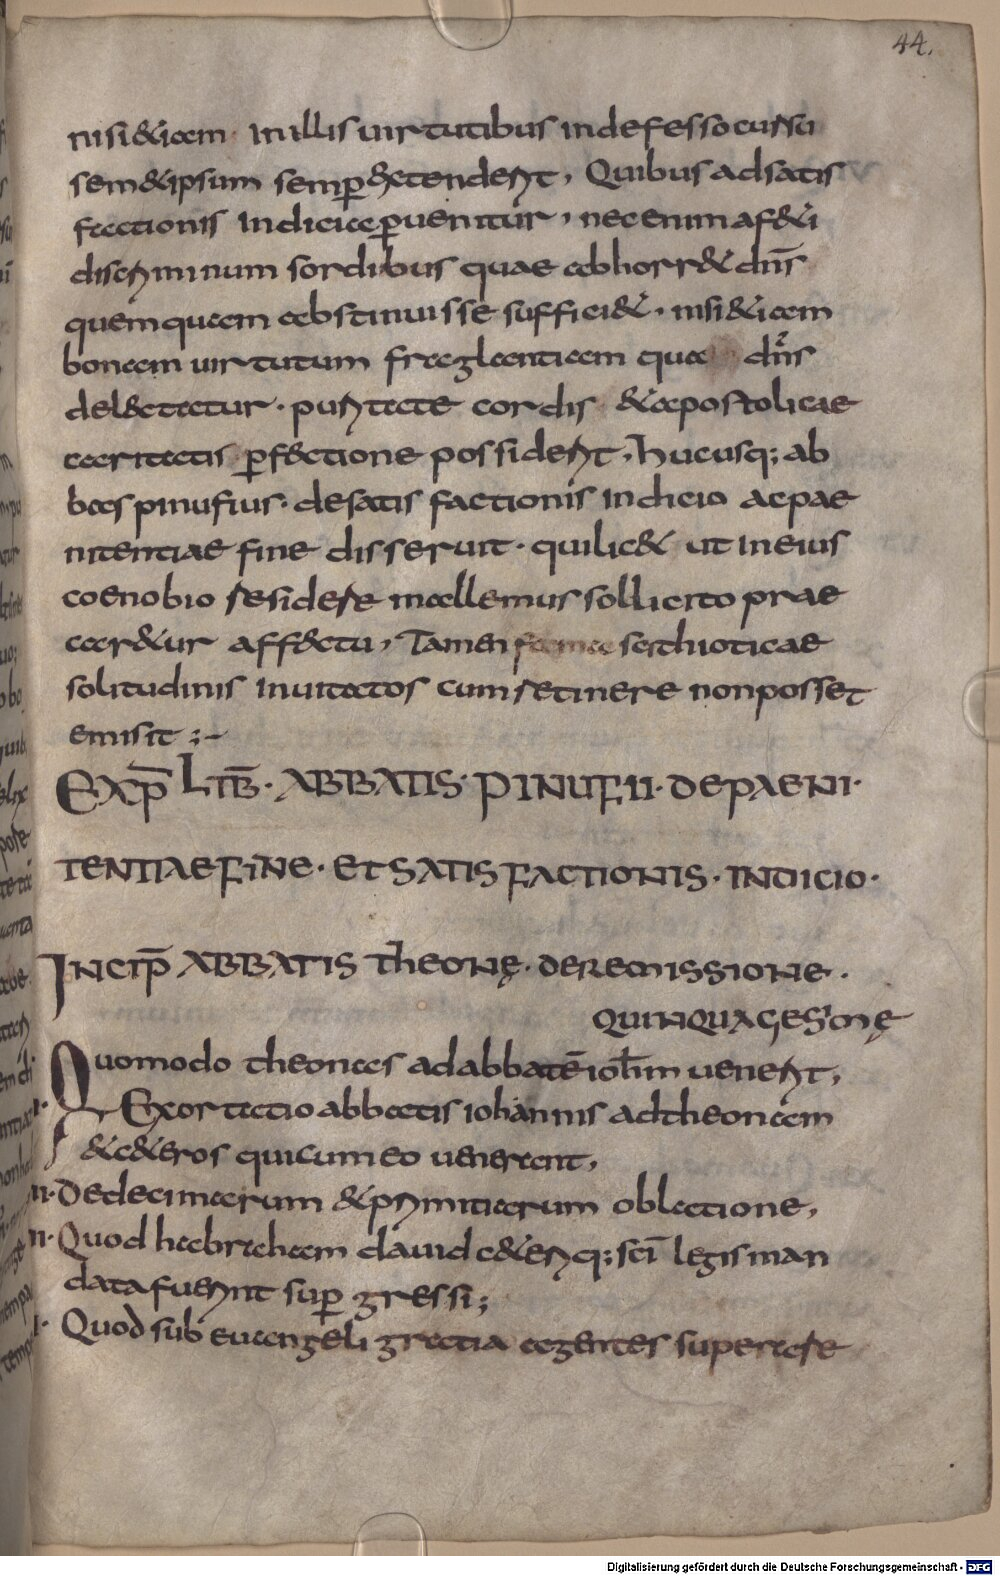 44.
nisi &iam in illis uirtutibus indefesso cursu
sem&ipsum semp extenderit, Quibus adsatis
factionis indicia puenitur, nec enim a f&i
dis criminum sordibus quae abhorr& dns
quemquam abstinuisse sufficiet. nisi &iam
bonam uirtutum fraglantiam qua dns
delectatur. puritate cordis &apostolicae
caritatis pfectione possiderit, hucusq; ab
bas pinufius. desatisfactionis indicio acpae
nitentiae fine disseruit. quilic& ut ineius
coenobio residere mallemus sollicito prae
car&ur affectu, Tamen fama scithioticae
solitudinis inuitatos cum retinere non posset
emisit ;-
EXP LIB. ABBATIS. PINUFII. DE PAENI.
TENTIAE FINE. ET SATISFACTIONIS. INDICIO.
INCIP ABBATIS THEONĘ. DE REMISSIONE.
QUINQUAGESIMĘ
Quomodo theonas ad abbatē iohm uenerit,
I. Exortatio abbatis iohannis ad theonam
&c&eros qui cum eo uenerant,
II. De decimarum &primitiarum oblatione,
II. Quod habraham dauid c&eriq; sci legis man
data fuerint sup gressi;
I. Quod sub euangeli gratia agentes superare
Digitalisierung gefördert durch die Deutsche Forschungsgemeinschaft - DFG